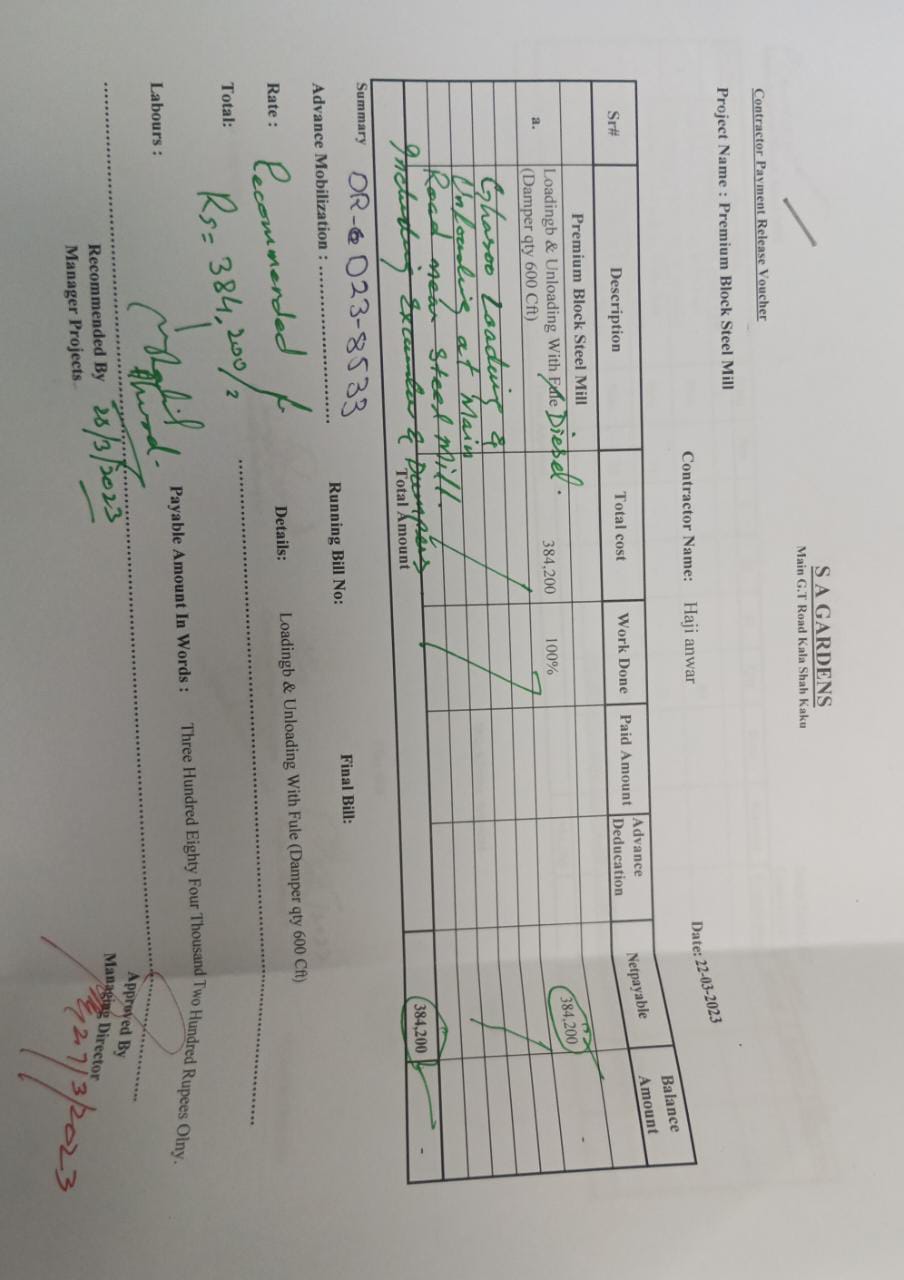 S A GARDENS
Main G.T Road Kala Shah Kaku
Contractor Payment Release Voucher
Project Name : Premium Block Steel Mill
Contractor Name: Haji anwar
Date: 22-03-2023
Sr# Description Total cost Work Done Paid Amount Advance Deducation Netpayable Balance Amount
Premium Block Steel Mill
a. Loadingb & Unloading With Fule Diesel. (Damper qty 600 Cft) 384,200 100% 384,200 -
Ghasoo Loading &
Unloading at Main
Road near Steel Mill.
Including Excavator & Dumpers
Total Amount 384,200 -
Summary OR-6023-8533 Running Bill No: Final Bill:
Advance Mobilization :
Rate : Details: Loadingb & Unloading With Fule (Damper qty 600 Cft)
Recommended
Total: Rs= 384,200/=
Labours : Payable Amount In Words : Three Hundred Eighty Four Thousand Two Hundred Rupees Olny.
Recommended By
Manager Projects
28/3/2023
Approved By
Managing Director
27/3/2023